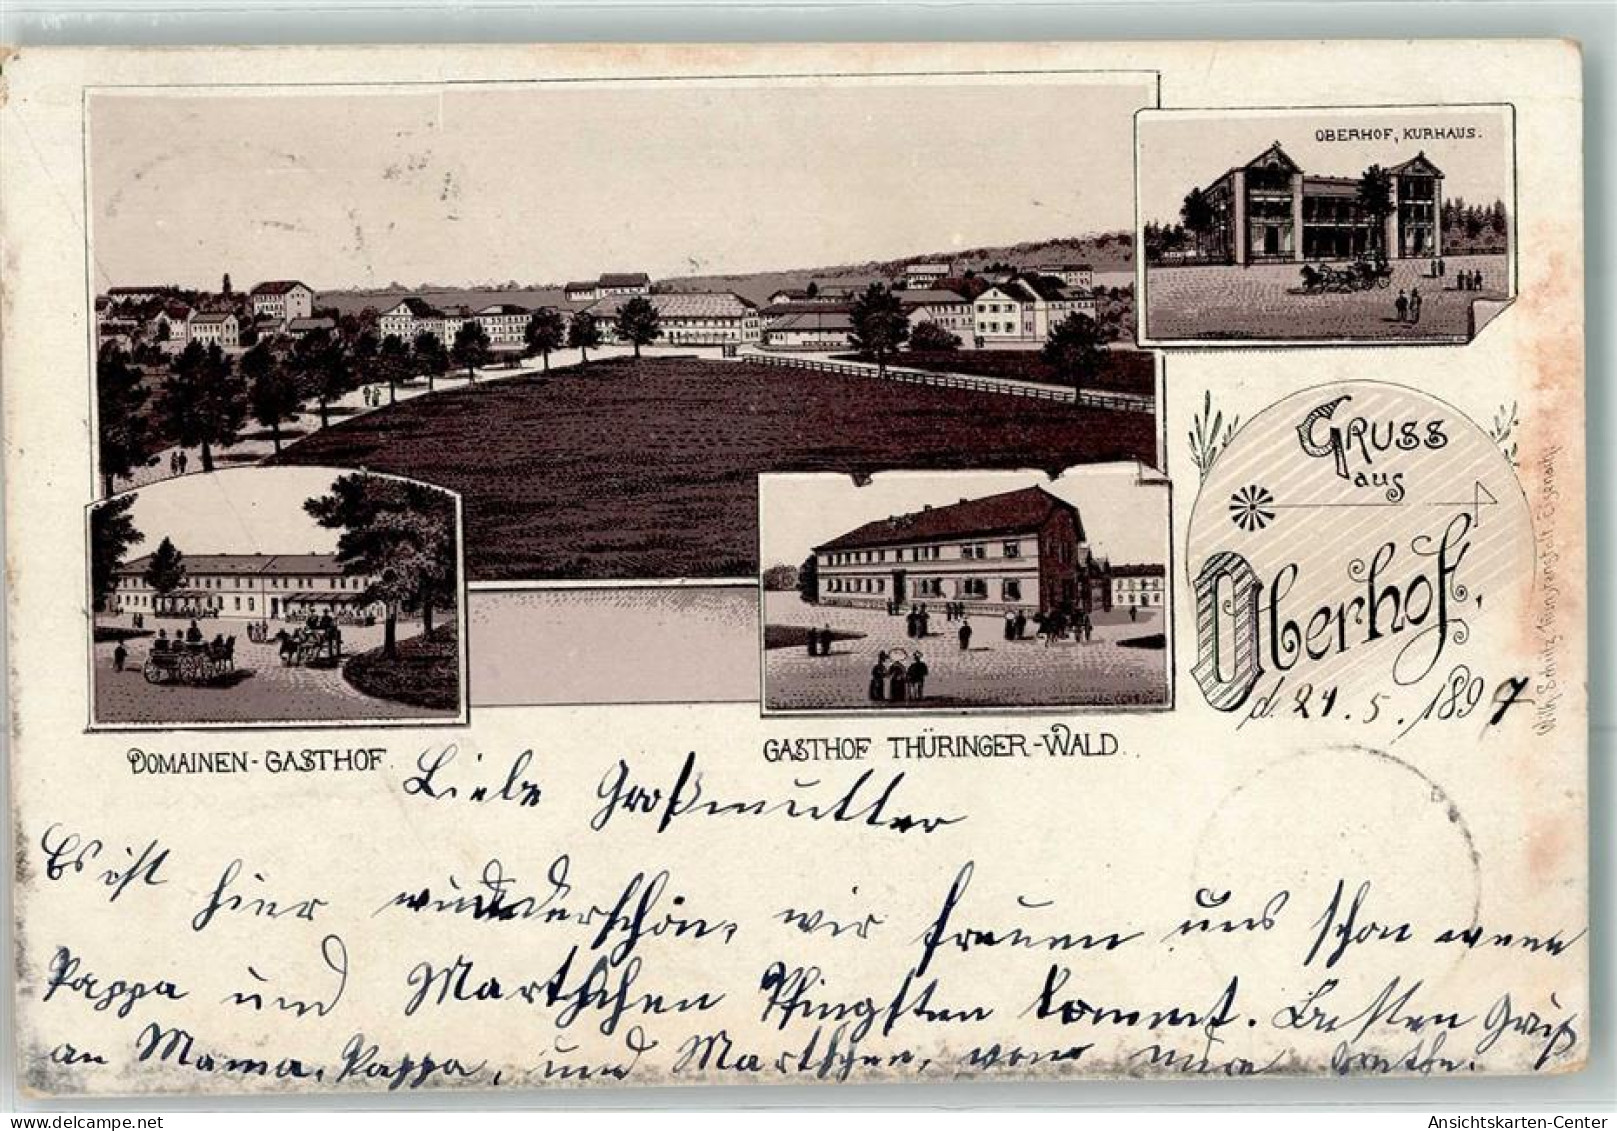 OBERHOF, KURHAUS.
GRUSS
aus
Oberhof.
d. 24. 5. 1897
DOMAINEN-GASTHOF.
GASTHOF THÜRINGER-WALD.
Liebe Großmutter
Es ist hier wunderschön, wir freuen uns schon wenn
Pappa und Marthchen Pfingsten kommt. Besten Gruß
an Mama, Pappa, und Marthchen, von
Ansichtskarten-Center